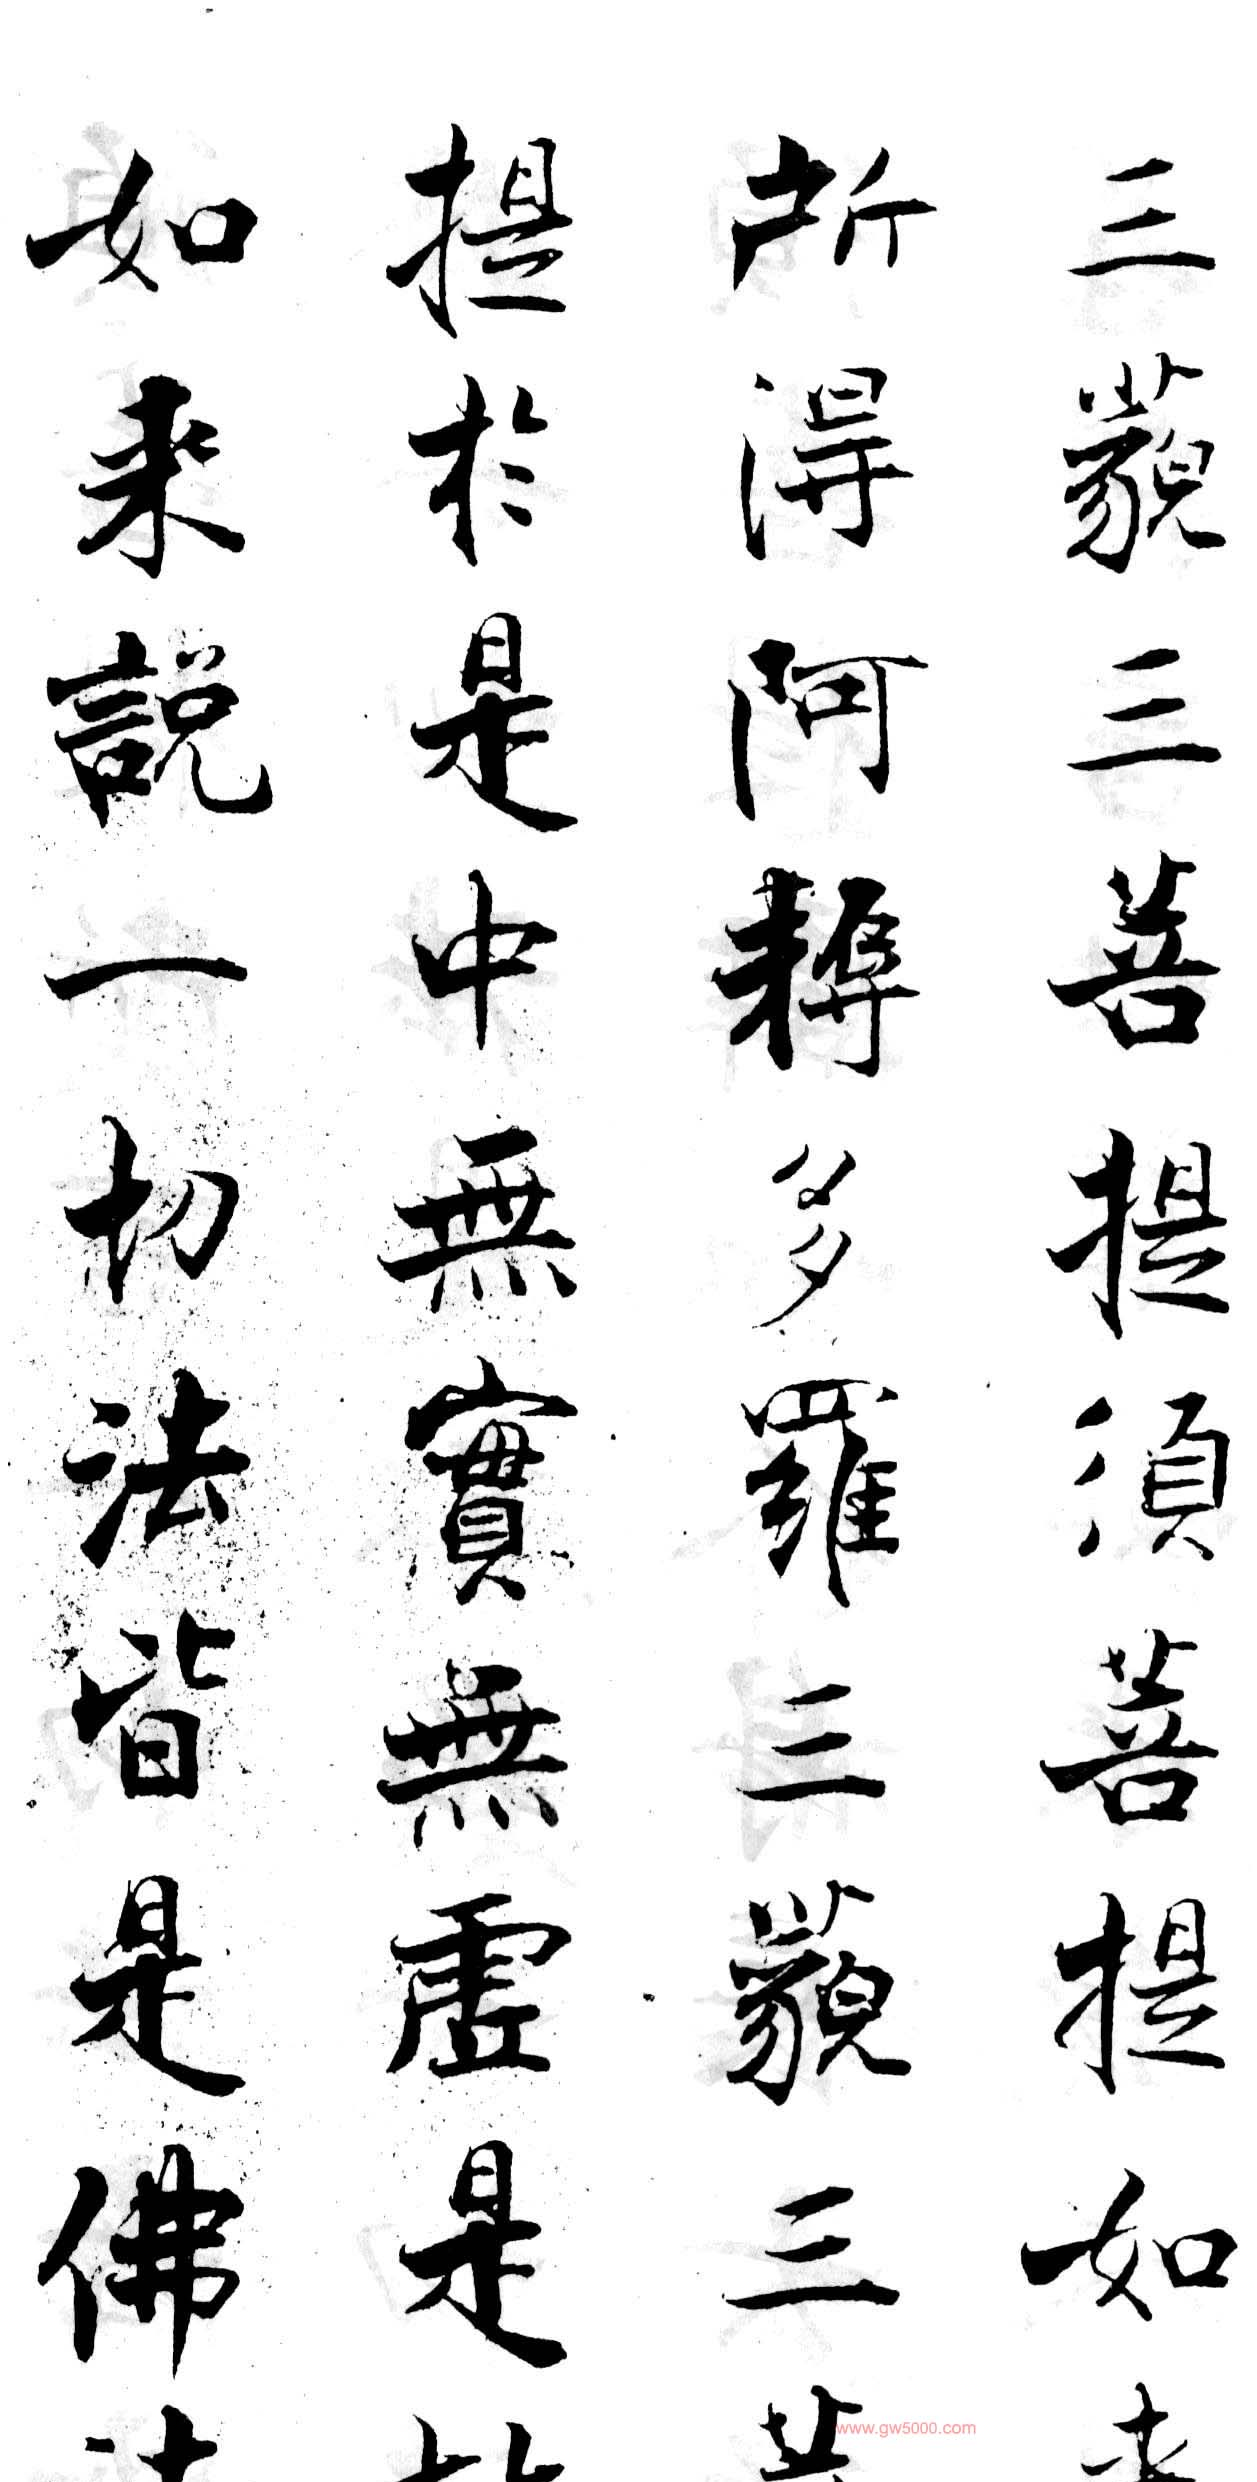 三藐三菩提須菩提如来
所得阿耨多羅三藐三菩
提於是中無實無虛是故
如来説一切法皆是佛法
www.gw5000.com